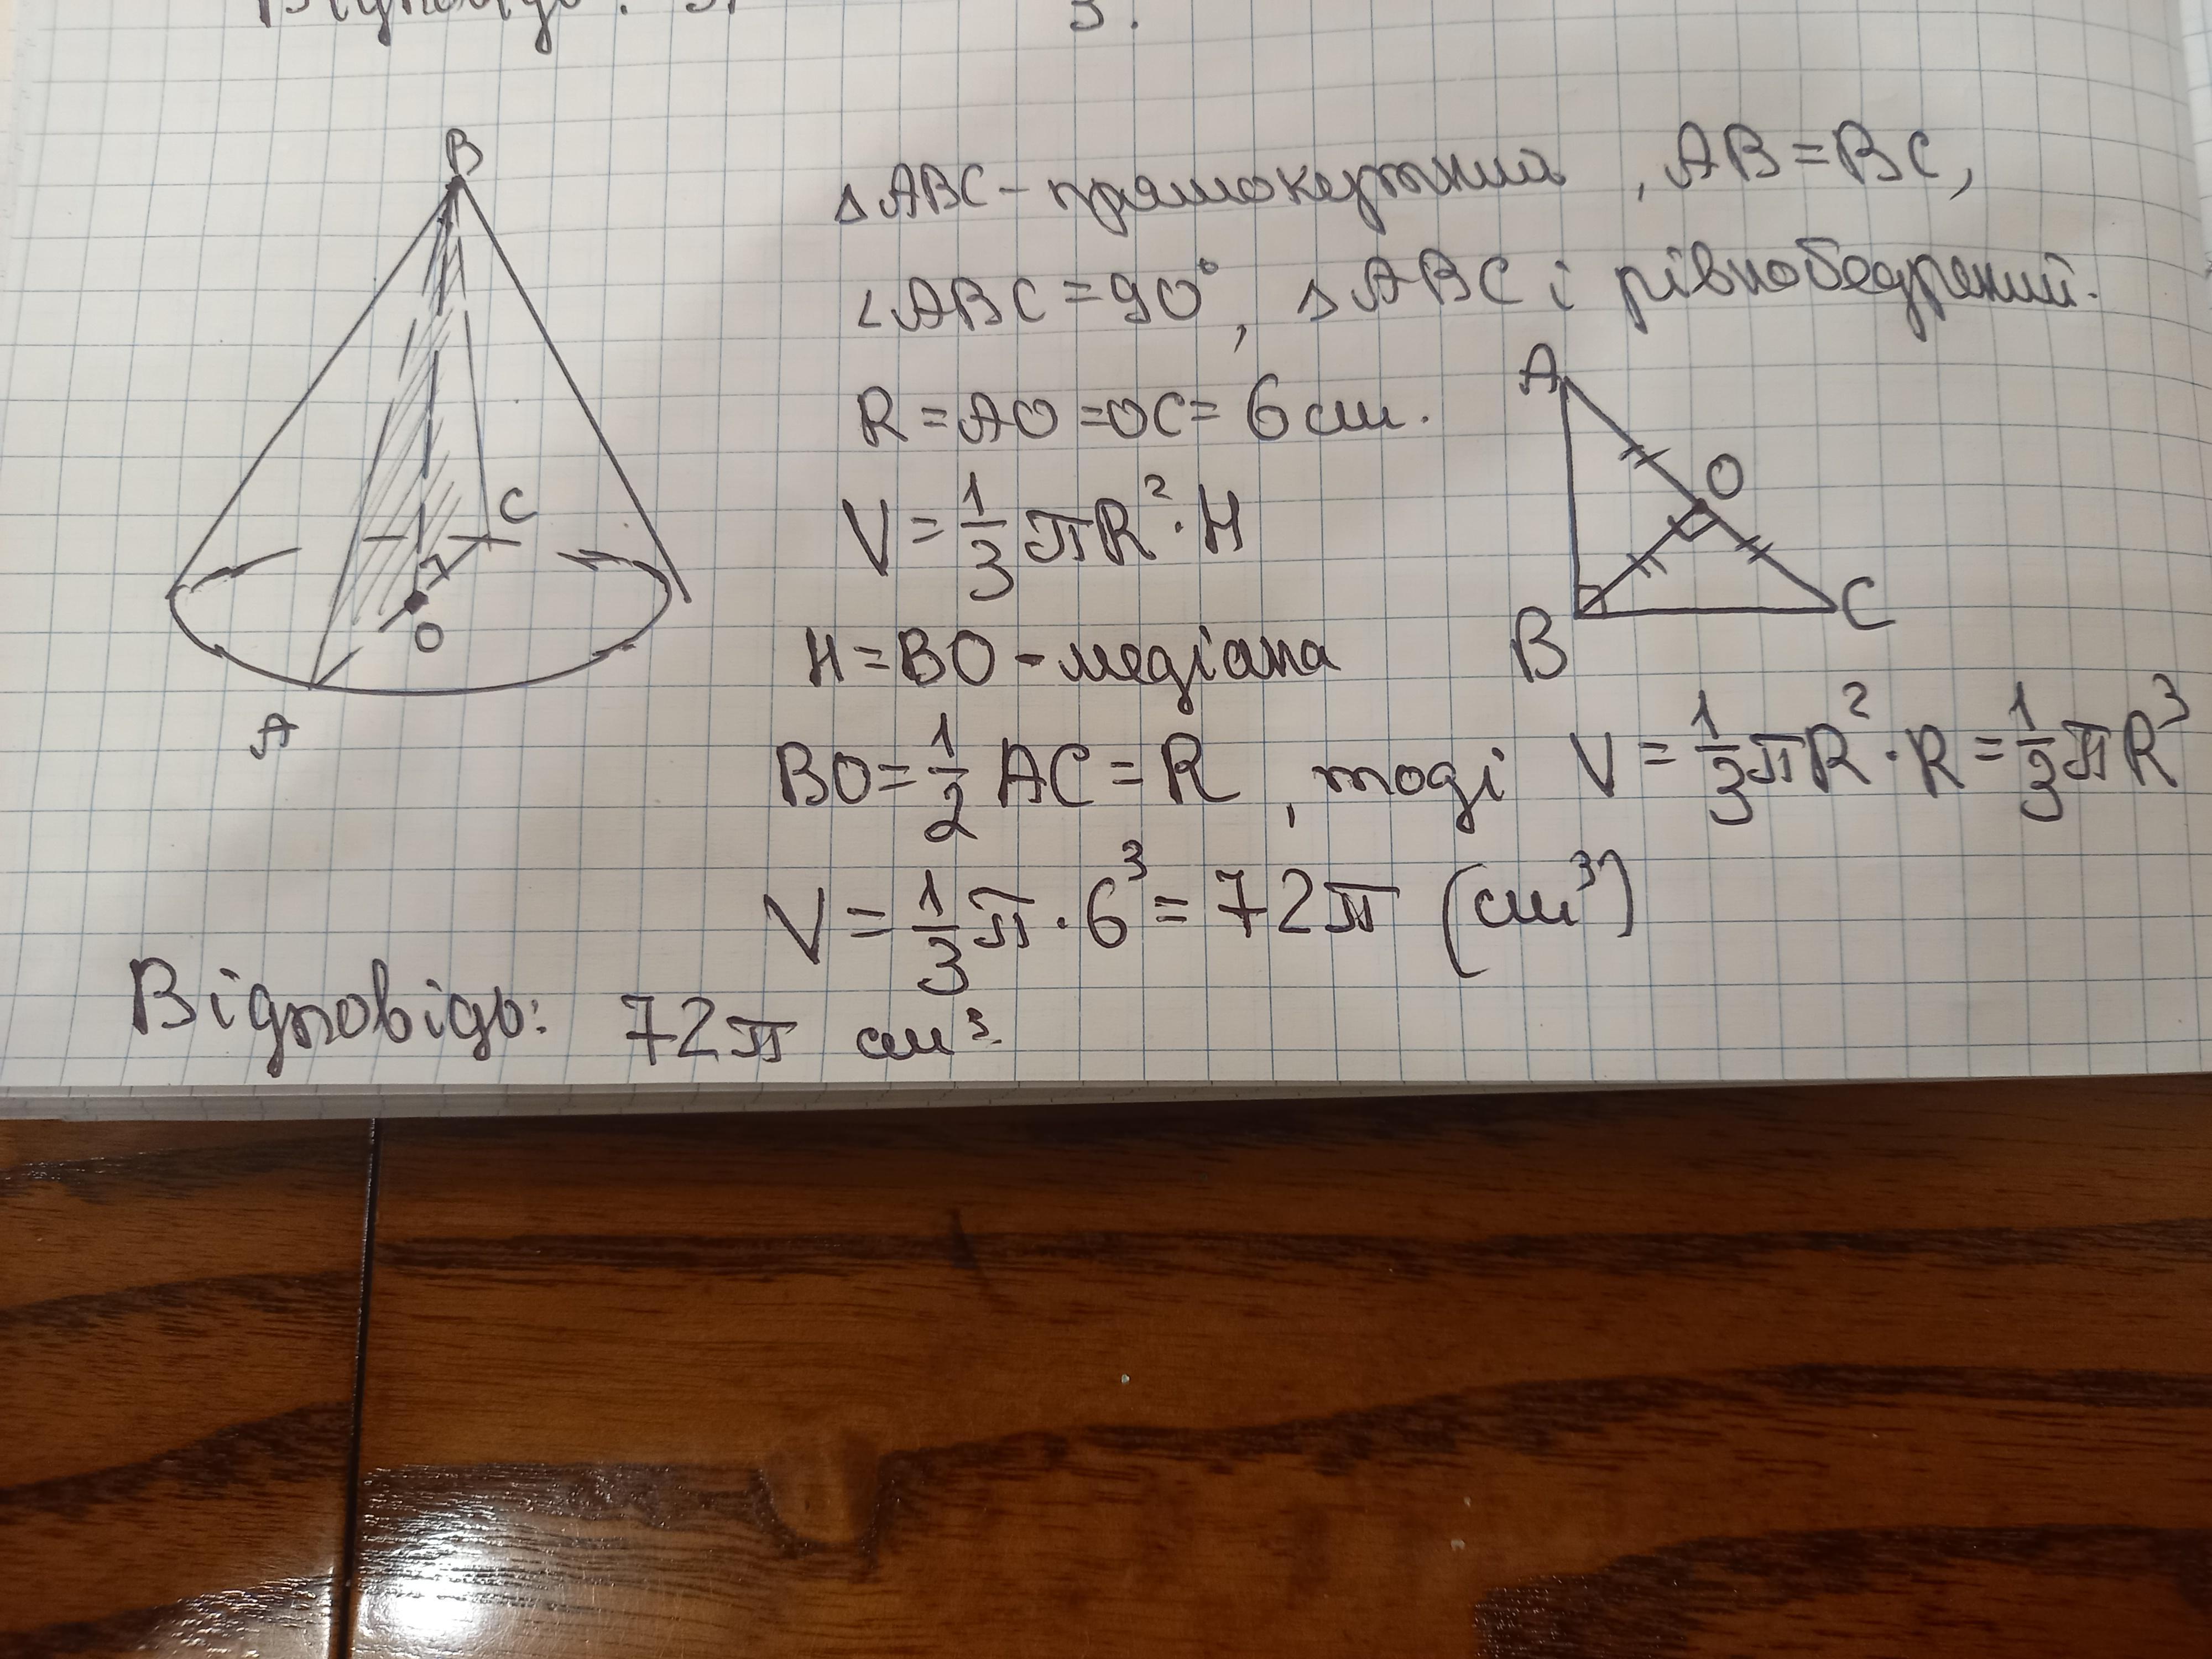 Відповідь:
B
C
O
A
△ABC - прямокутний, AB = BC,
∠ABC = 90°, △ABC і рівнобедрений.
R = AO = OC = 6 см.
A
O
B
C
V = 1/3 πR² · H
H = BO - медіана
BO = 1/2 AC = R, тоді V = 1/3 πR² · R = 1/3 πR³
V = 1/3 π · 6³ = 72π (см³)
Відповідь: 72π см³.